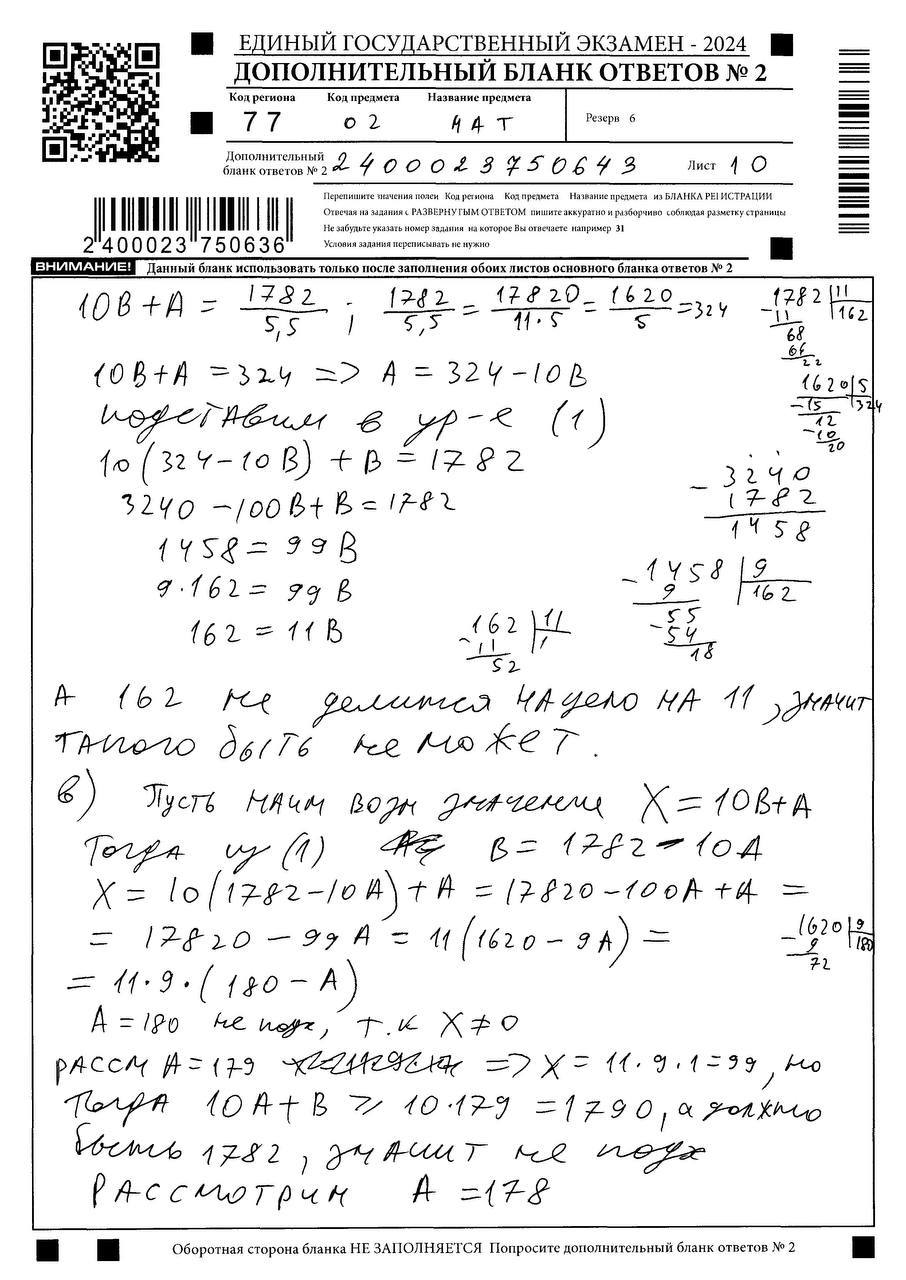 ЕДИНЫЙ ГОСУДАРСТВЕННЫЙ ЭКЗАМЕН - 2024
ДОПОЛНИТЕЛЬНЫЙ БЛАНК ОТВЕТОВ № 2
Код региона Код предмета Название предмета
77 02 МАТ Резерв 6
Дополнительный бланк ответов № 2 2400023750643 Лист 10
Перепишите значения полей Код региона Код предмета Название предмета из БЛАНКА РЕГИСТРАЦИИ
Отвечая на задания с РАЗВЕРНУТЫМ ОТВЕТОМ пишите аккуратно и разборчиво соблюдая разметку страницы
Не забудьте указать номер задания на которое Вы отвечаете например 31
Условия задания переписывать не нужно
2 400023 750636
ВНИМАНИЕ! Данный бланк использовать только после заполнения обоих листов основного бланка ответов № 2
10B+A = 1782/5,5 ; 1782/5,5 = 17820/11·5 = 1620/5 = 324
1782 | 11
- 11 162
68
66
22
10B+A = 324 => A = 324-10B
1620 | 5
- 15 324
12
- 10
20
подставим в ур-е (1)
10(324-10B) + B = 1782
3240 - 100B + B = 1782
- 3240
1782
1458
1458 = 99B
9·162 = 99B
- 1458 | 9
9 162
55
- 54
18
162 = 11B
- 162 | 11
11 1
52
А 162 не делится нацело на 11, значит
такого быть не может.
в) Пусть наим возм значение X = 10B+A
Тогда из (1) B = 1782 - 10A
X = 10(1782-10A) + A = 17820-100A+A =
= 17820 - 99A = 11(1620 - 9A) =
1620 | 9
- 9 180
72
= 11·9·(180 - A)
A = 180 не подх, т.к X ≠ 0
рассм A = 179 => X = 11·9·1 = 99, но
тогда 10A+B ⩾ 10·179 = 1790, а должно
быть 1782, значит не подх
Рассмотрим A = 178
Оборотная сторона бланка НЕ ЗАПОЛНЯЕТСЯ Попросите дополнительный бланк ответов № 2